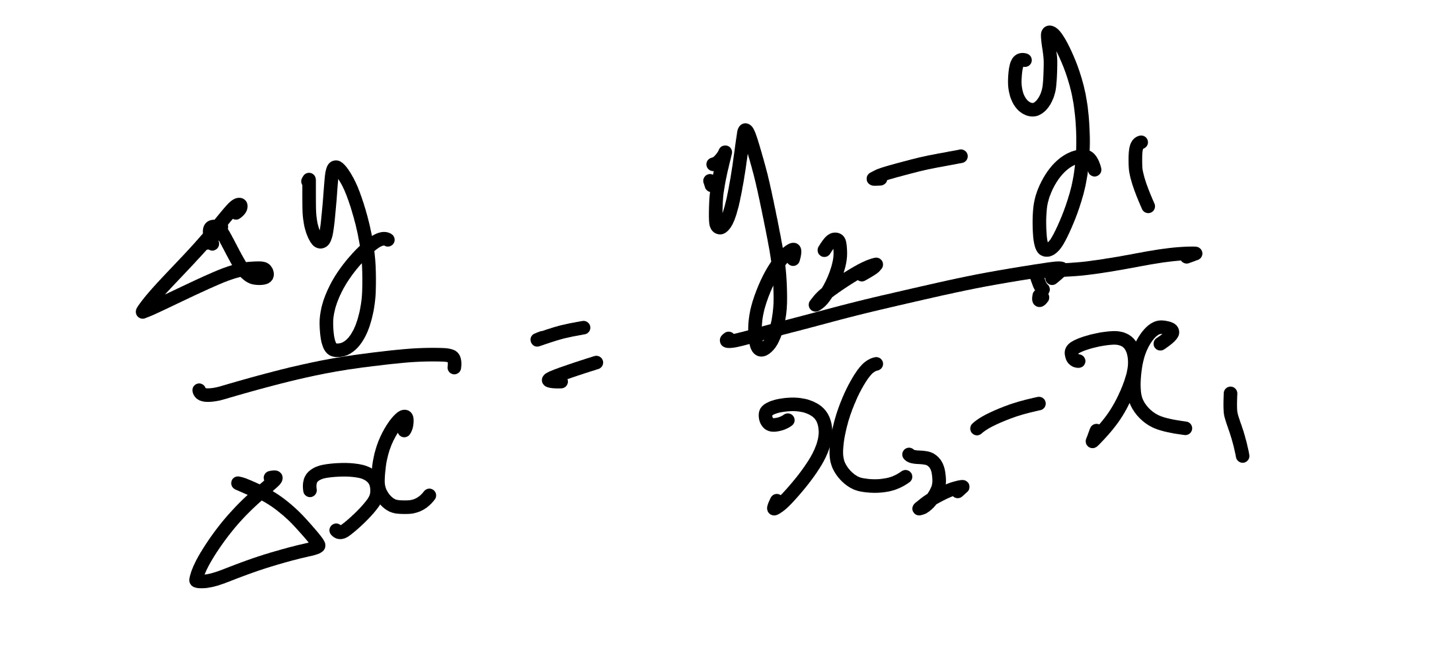 Δy/Δx = (y₂ - y₁)/(x₂ - x₁)